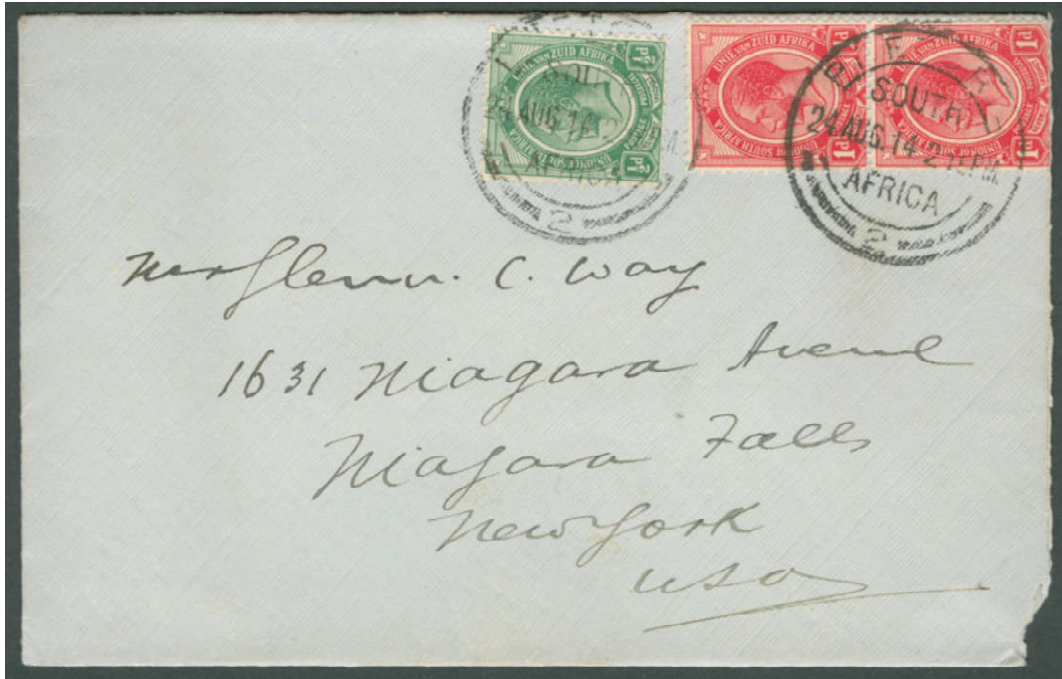 UNIE VAN ZUID AFRIKA
UNION OF SOUTH AFRICA
½d
½d
UNIE VAN ZUID AFRIKA
UNION OF SOUTH AFRICA
1d
1d
UNIE VAN ZUID AFRIKA
UNION OF SOUTH AFRICA
1d
1d
24 AUG. 14
AFRICA
2
SOUTH
24 AUG. 14
PM
AFRICA
2
Mr Glenn. C. Way
1631 Niagara Avenue
Niagara Falls
New York
USA